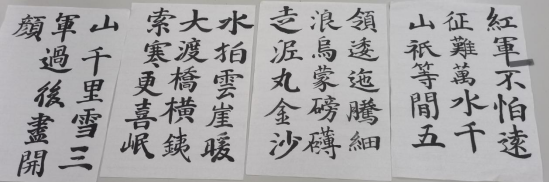 紅軍不怕遠
征難萬水千
山祇等閒五
領逶迤騰細
浪烏蒙磅礡
走泥丸金沙
水拍雲崖暖
大渡橋橫銕
索寒更喜岷
山千里雪三
軍過後盡開
顏